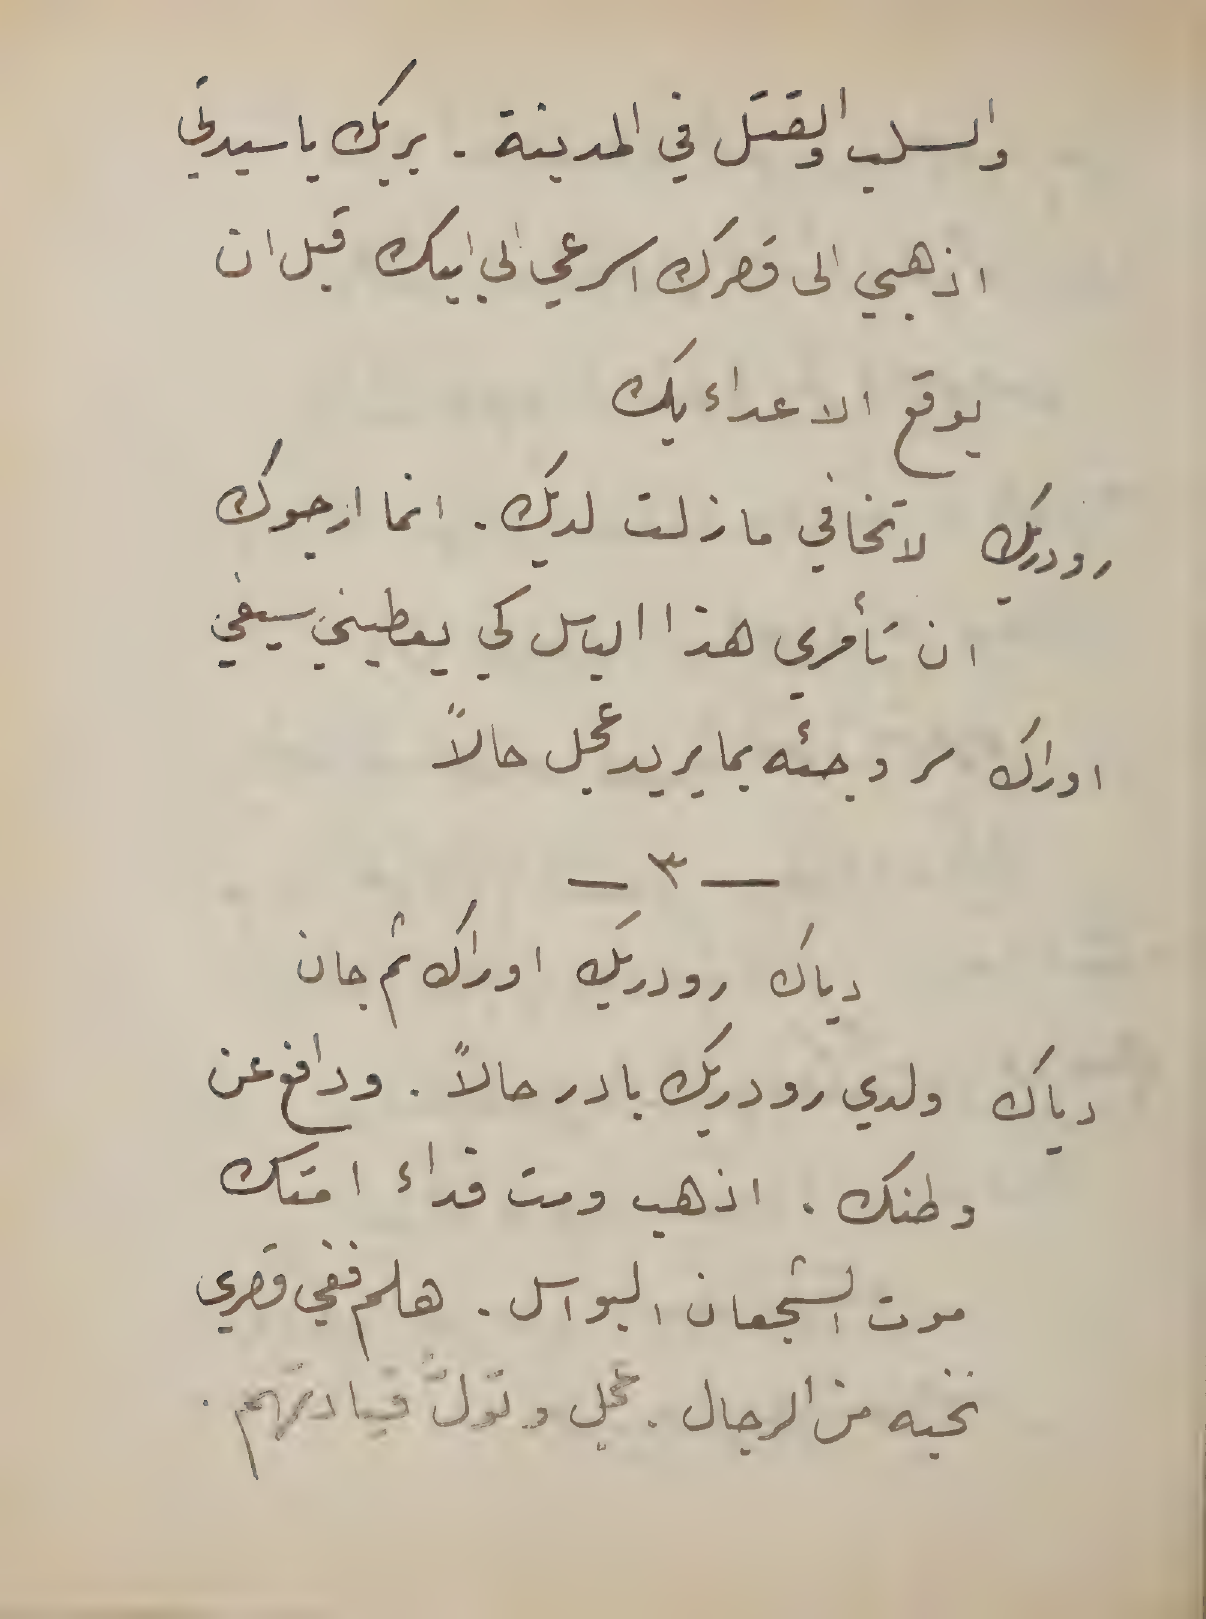 والسلب والقتل في المدينة . بربك يا سيدتي
اذهبي الى قصرك اسرعي الى ابيك قبل ان
يوقع الاعداء بك
رودريك لا تخافي ما زلت لديك . انما ارجوك
ان تأمري هذا الباسل كي يعطيني سيفي
اوراك سر وجئه بما يريد عجل حالاً
— ٣ —
دياك رودريك اوراك ثم جان
دياك ولدي رودريك بادر حالاً . ودافع عن
وطنك . اذهب ومت فداء امتك
موت الشجعان البواسل . هلم ففي قصري
نخبه من الرجال . عجل وتولَّ قيادتهم .